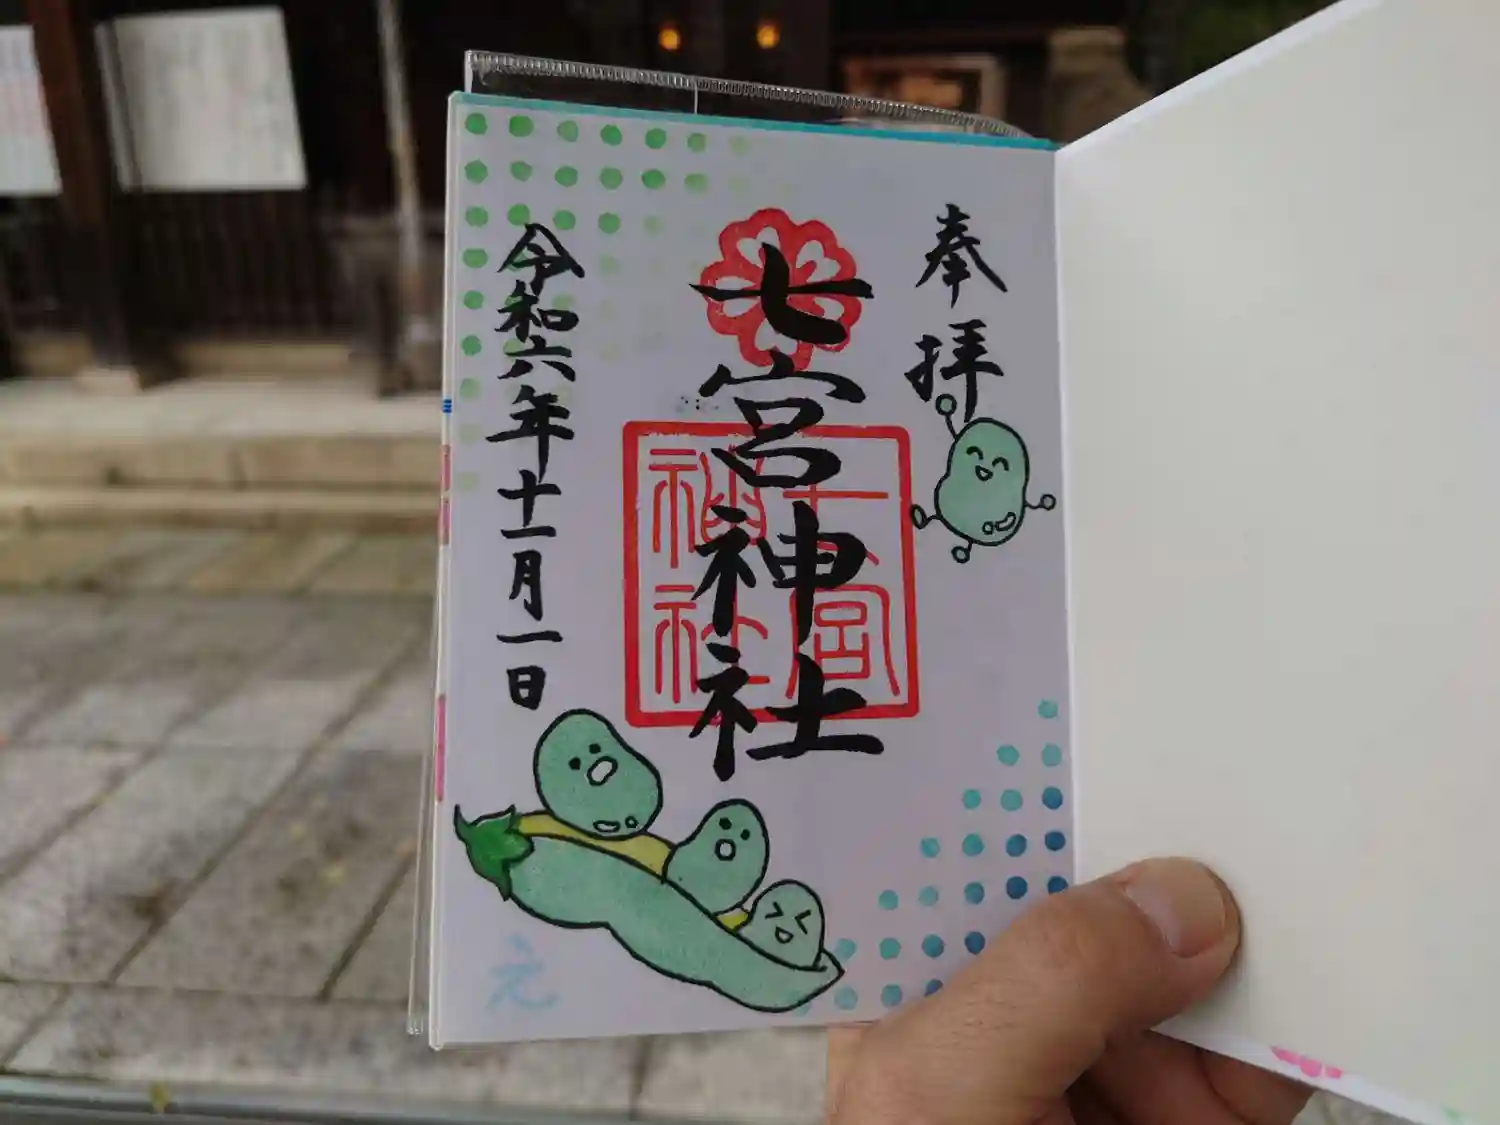 奉拝
七宮神社
七宮神社
令和六年十一月一日
元